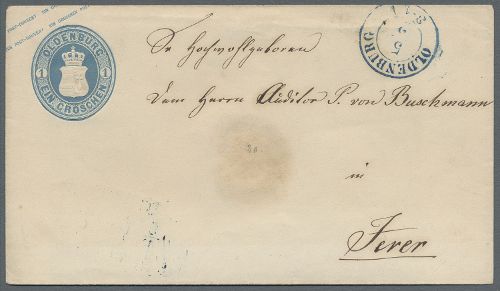 OLDENBURG
1 1
EIN GROSCHEN
OLDENBURG
Sr Hochwohlgeboren
Dem Herrn Auditor P. von Buschmann
in
Jever